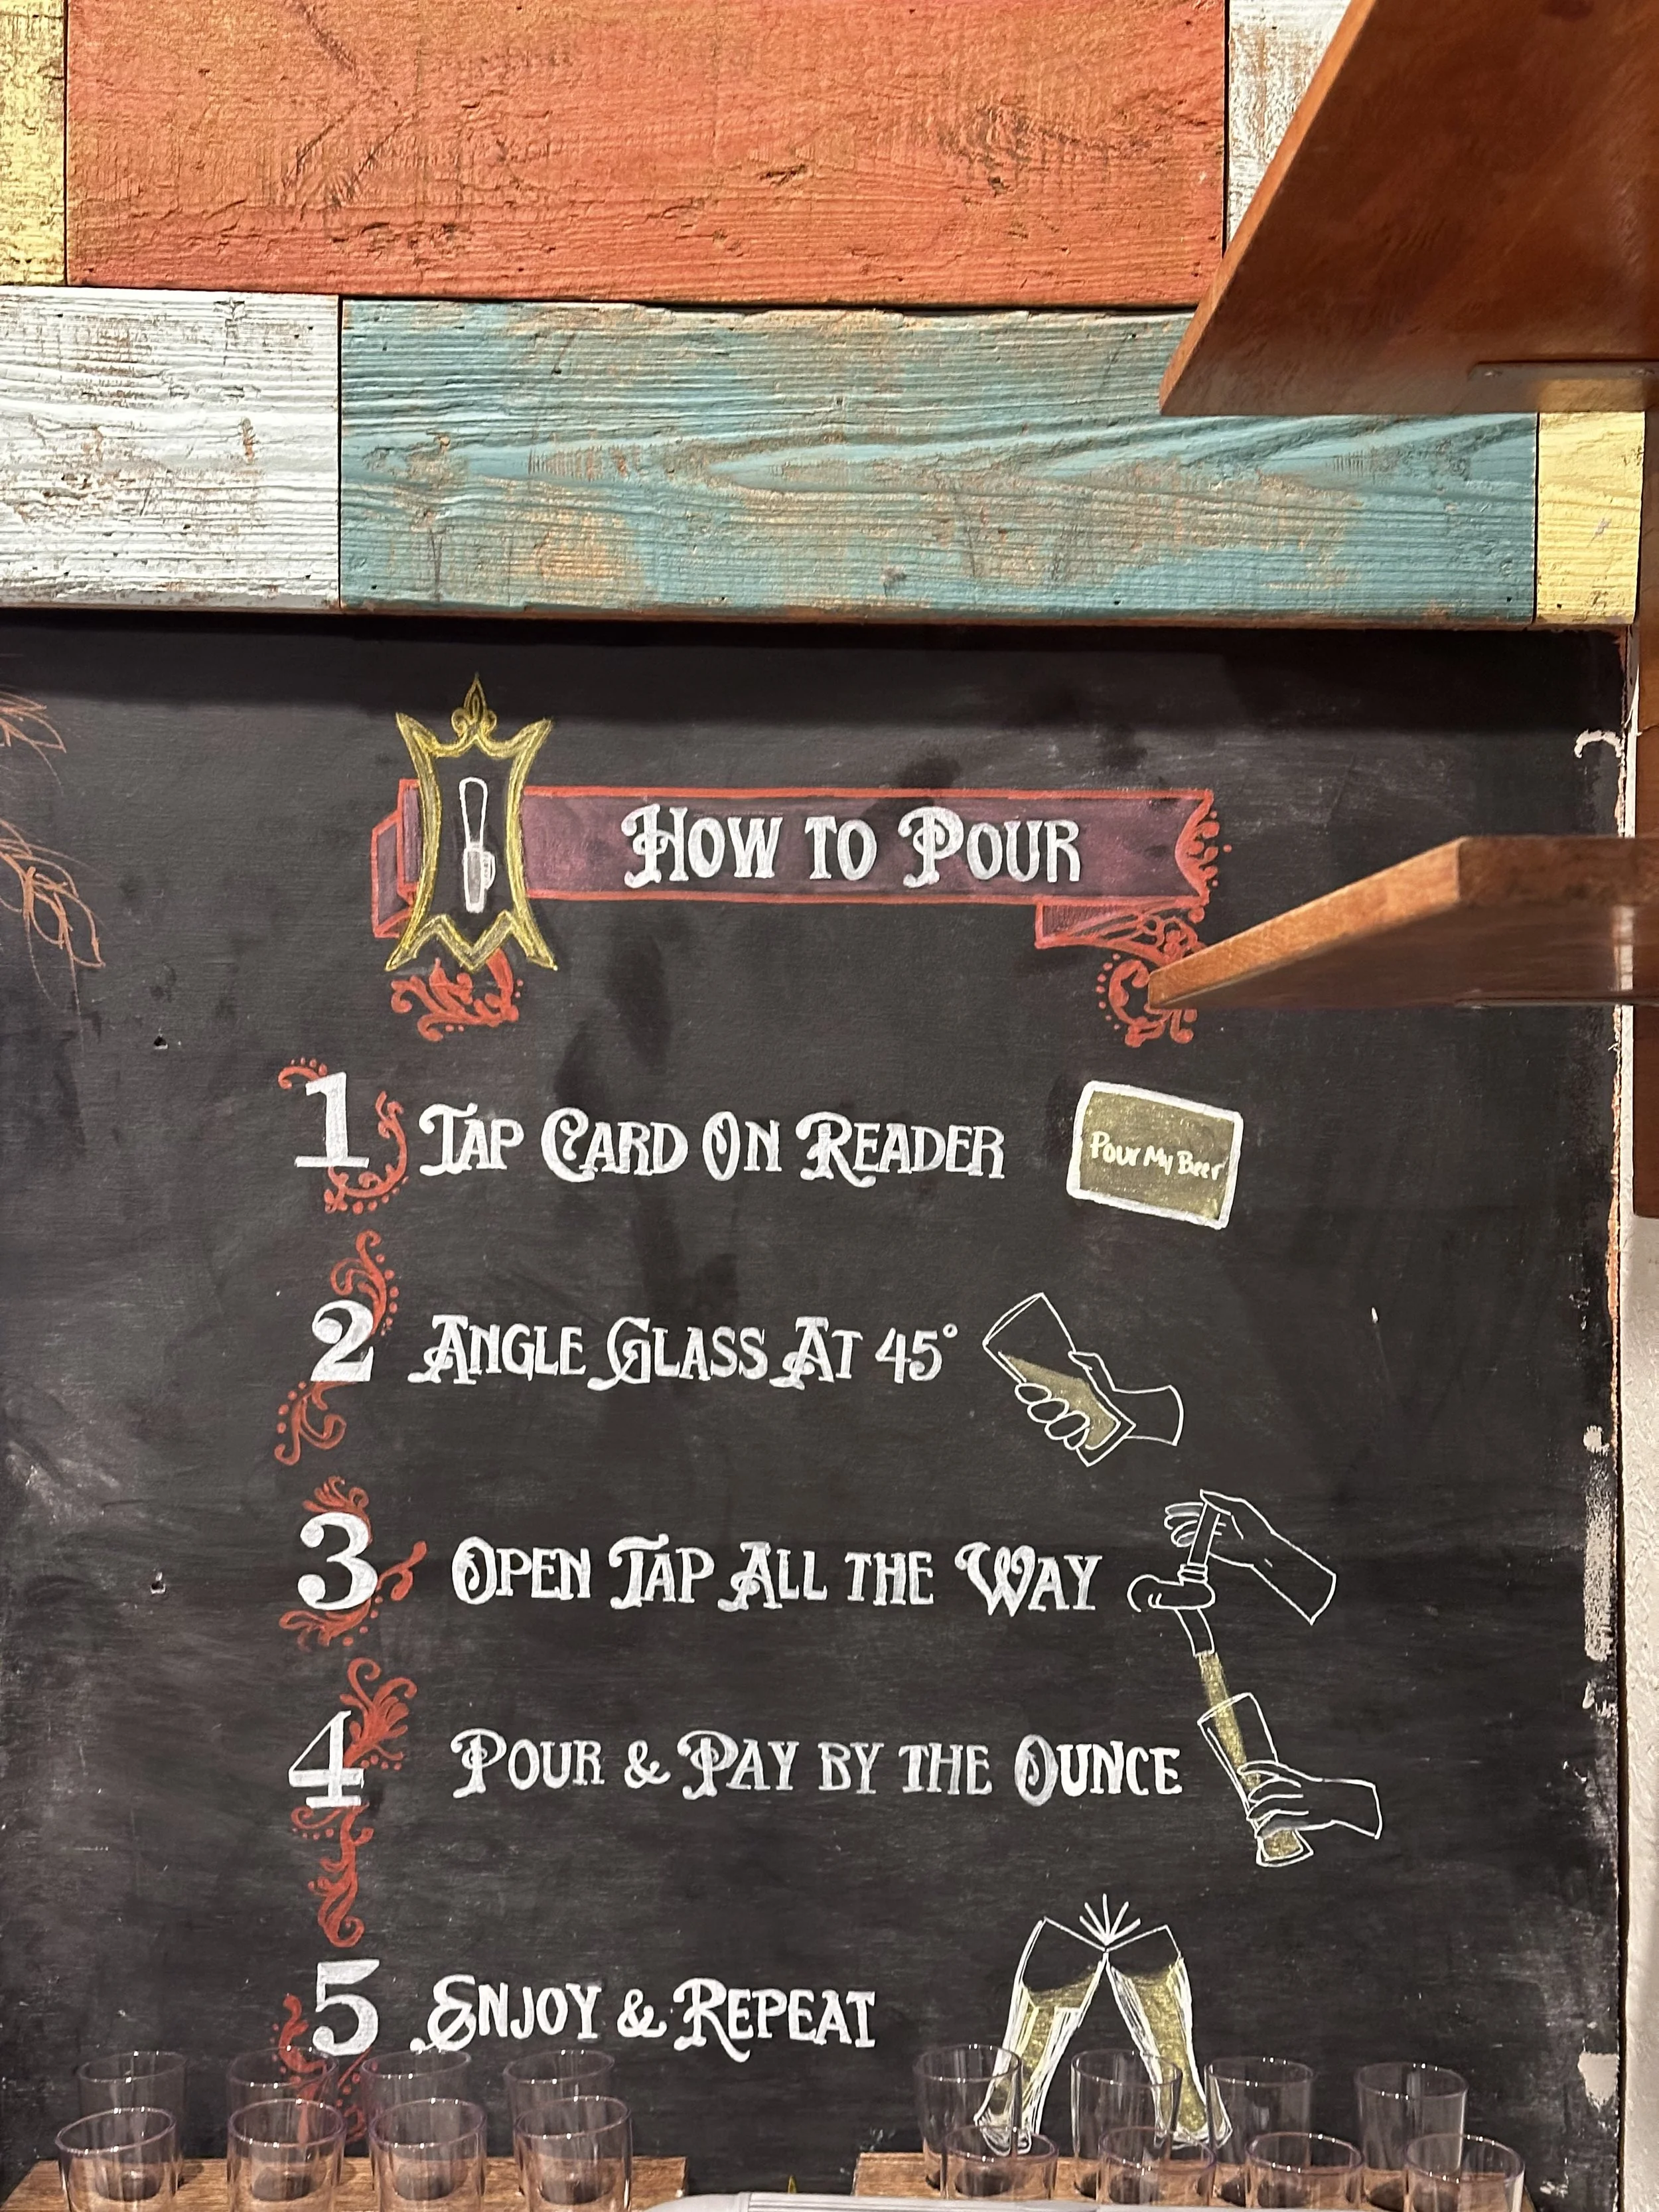 How to Pour
1 Tap Card On Reader
Pour My Beer
2 Angle Glass At 45°
3 Open Tap All the Way
4 Pour & Pay by the Ounce
5 Enjoy & Repeat